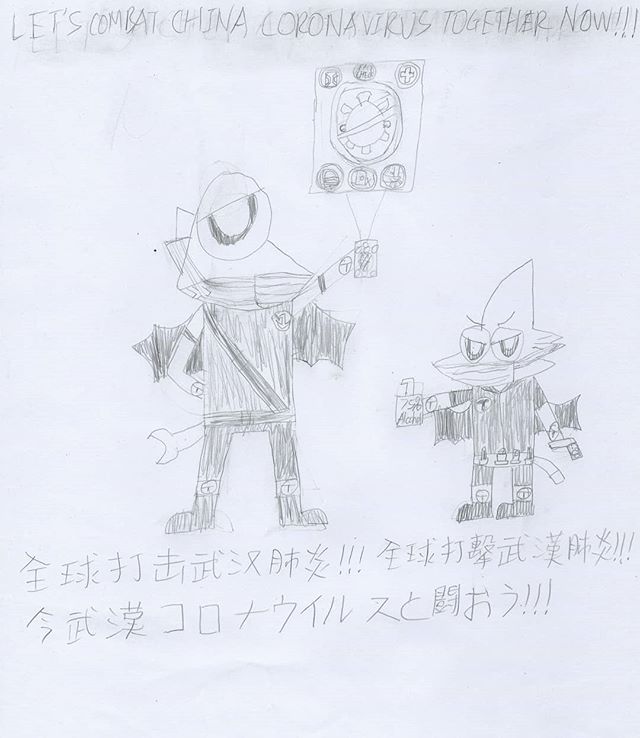 LET'S COMBAT CHINA CORONAVIRUS TOGETHER NOW!!!
75%
Alcohol
全球打击武汉肺炎!!! 全球打擊武漢肺炎!!!
今武漢コロナウイルスと闘おう!!!